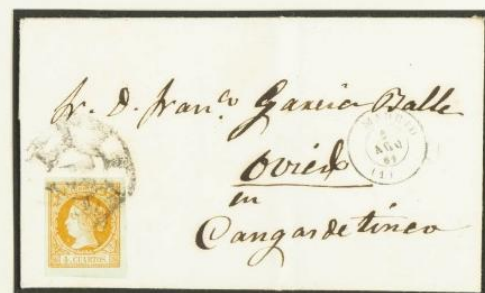 Sr. D. Franco Garcia Balle
Oviedo
en
Cangas de tineo
MADRID
2
AGO
61
(1)
4 CUARTOS